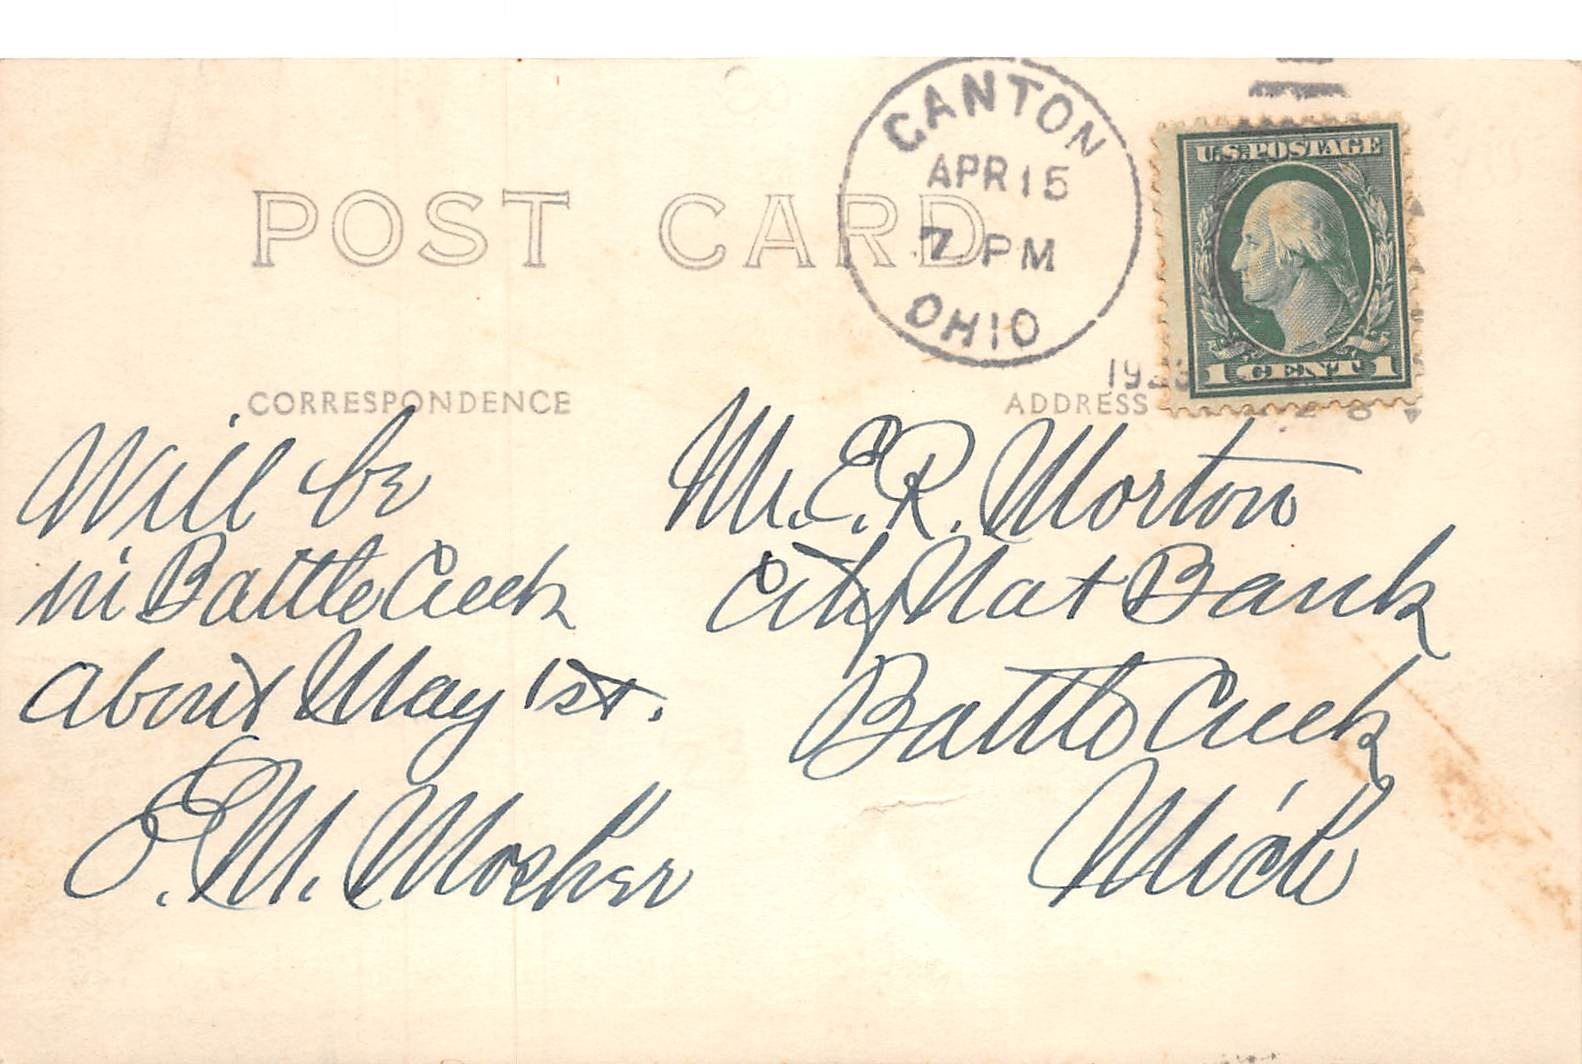 POST CARD
CANTON
APR 15
7 PM
OHIO
U.S. POSTAGE
1 CENT 1
CORRESPONDENCE
ADDRESS
Will be
in Battle Creek
about May 1st.
E. M. Mosher
Mr. E. R. Morton
City Nat Bank
Battle Creek
Mich